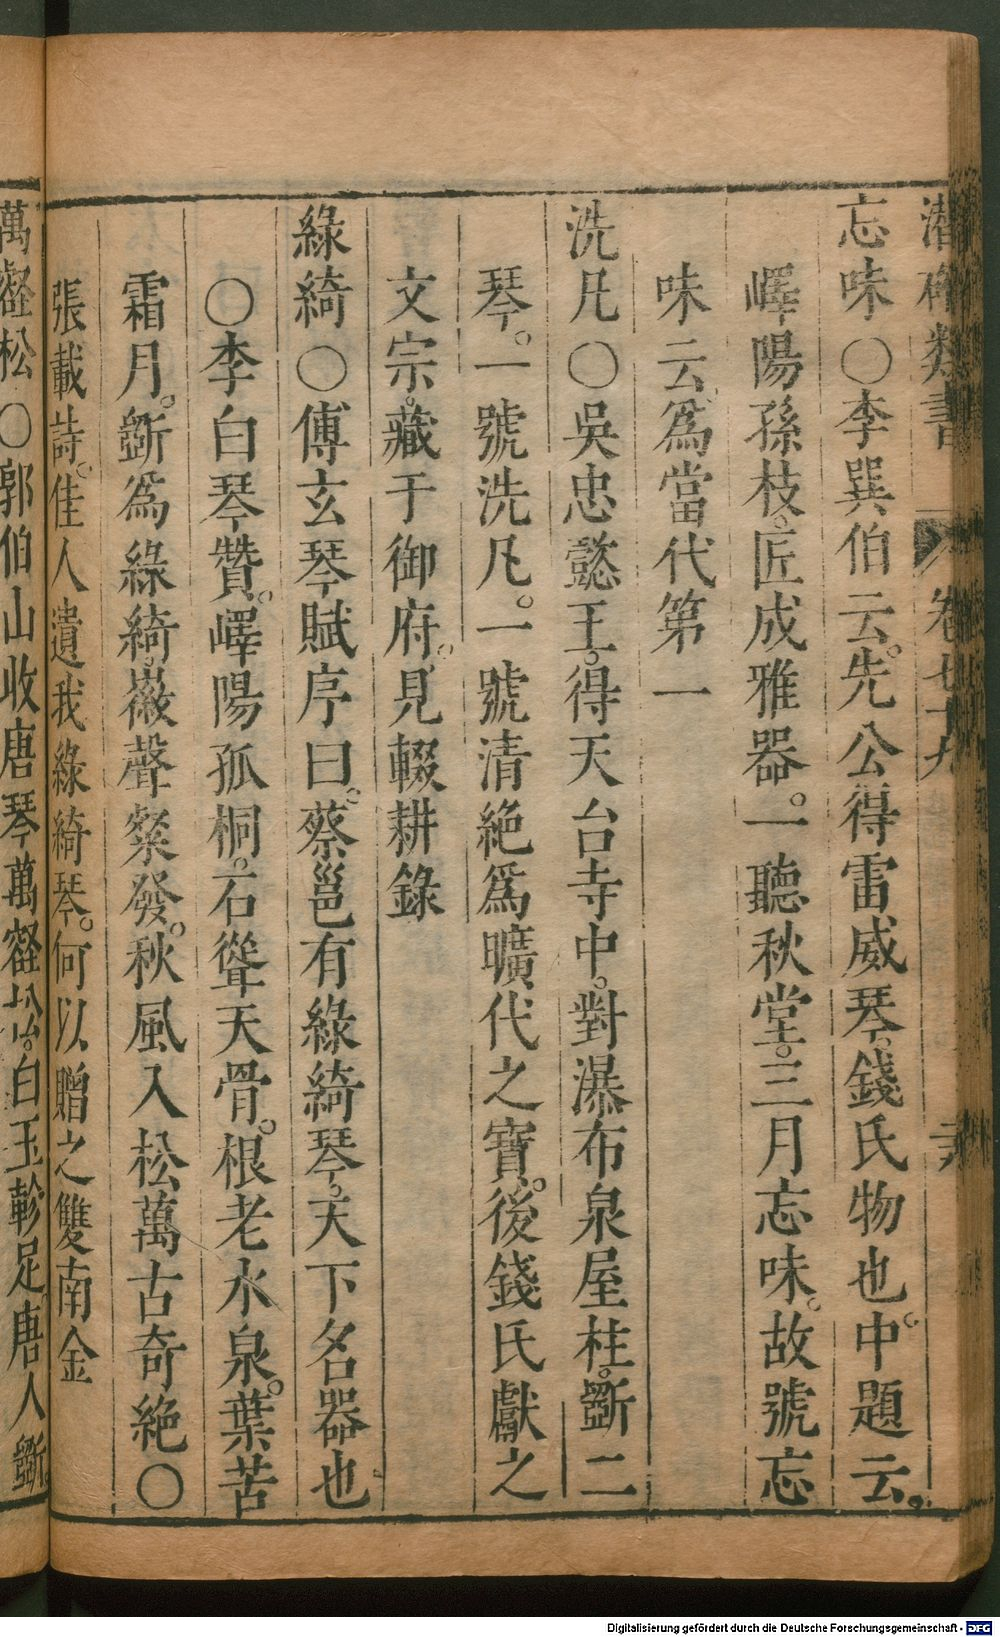 潛確類書 卷七十九
忘味○李巽伯云。先公得雷威琴。錢氏物也。中題云。
嶧陽孫枝。匠成雅器。一聽秋堂。三月忘味。故號忘
味云。爲當代第一
洗凡○吳忠懿王。得天台寺中。對瀑布泉屋柱。斵二
琴。一號洗凡。一號清絶爲曠代之寶。後錢氏獻之
文宗。藏于御府。見輟耕錄
綠綺○傅玄琴賦序曰。蔡邕有綠綺琴。天下名器也
○李白琴贊。嶧陽孤桐。石聳天骨。根老水泉。葉苦
霜月。斵爲綠綺。徽聲粲發。秋風入松萬古奇絶○
張載詩。佳人遺我綠綺琴。何以贈之雙南金
萬壑松○郭伯山收唐琴萬壑松。白玉軫足。唐人斵。
Digitalisierung gefördert durch die Deutsche Forschungsgemeinschaft - DFG